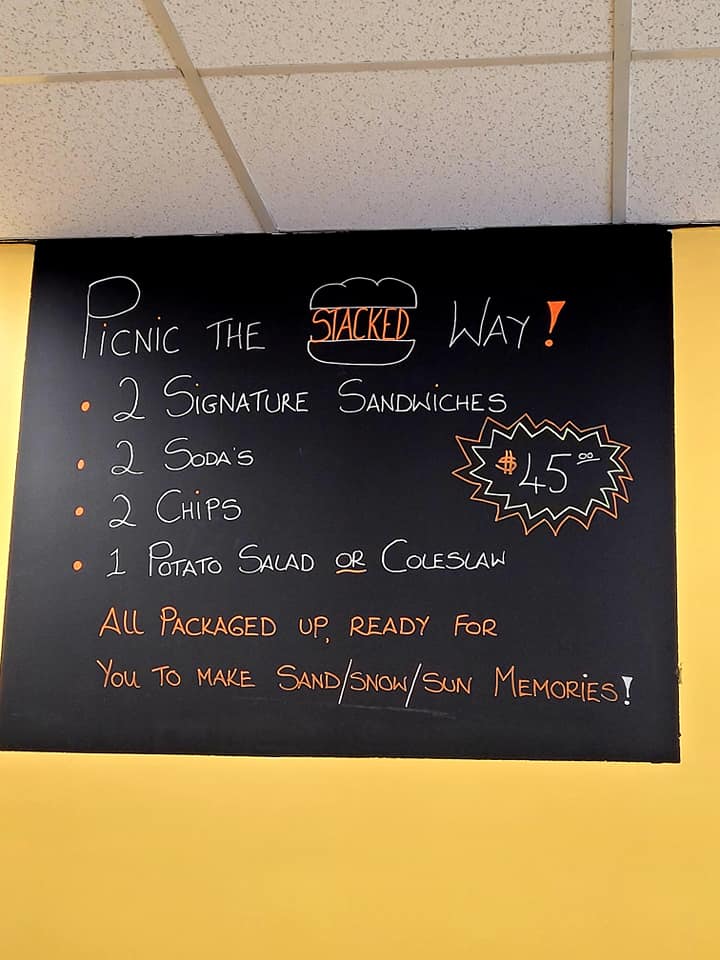 Picnic the STACKED Way!
• 2 Signature Sandwiches
• 2 Soda's
$45.00
• 2 Chips
• 1 Potato Salad or Coleslaw
All Packaged up, ready for
You to make Sand/snow/sun Memories!